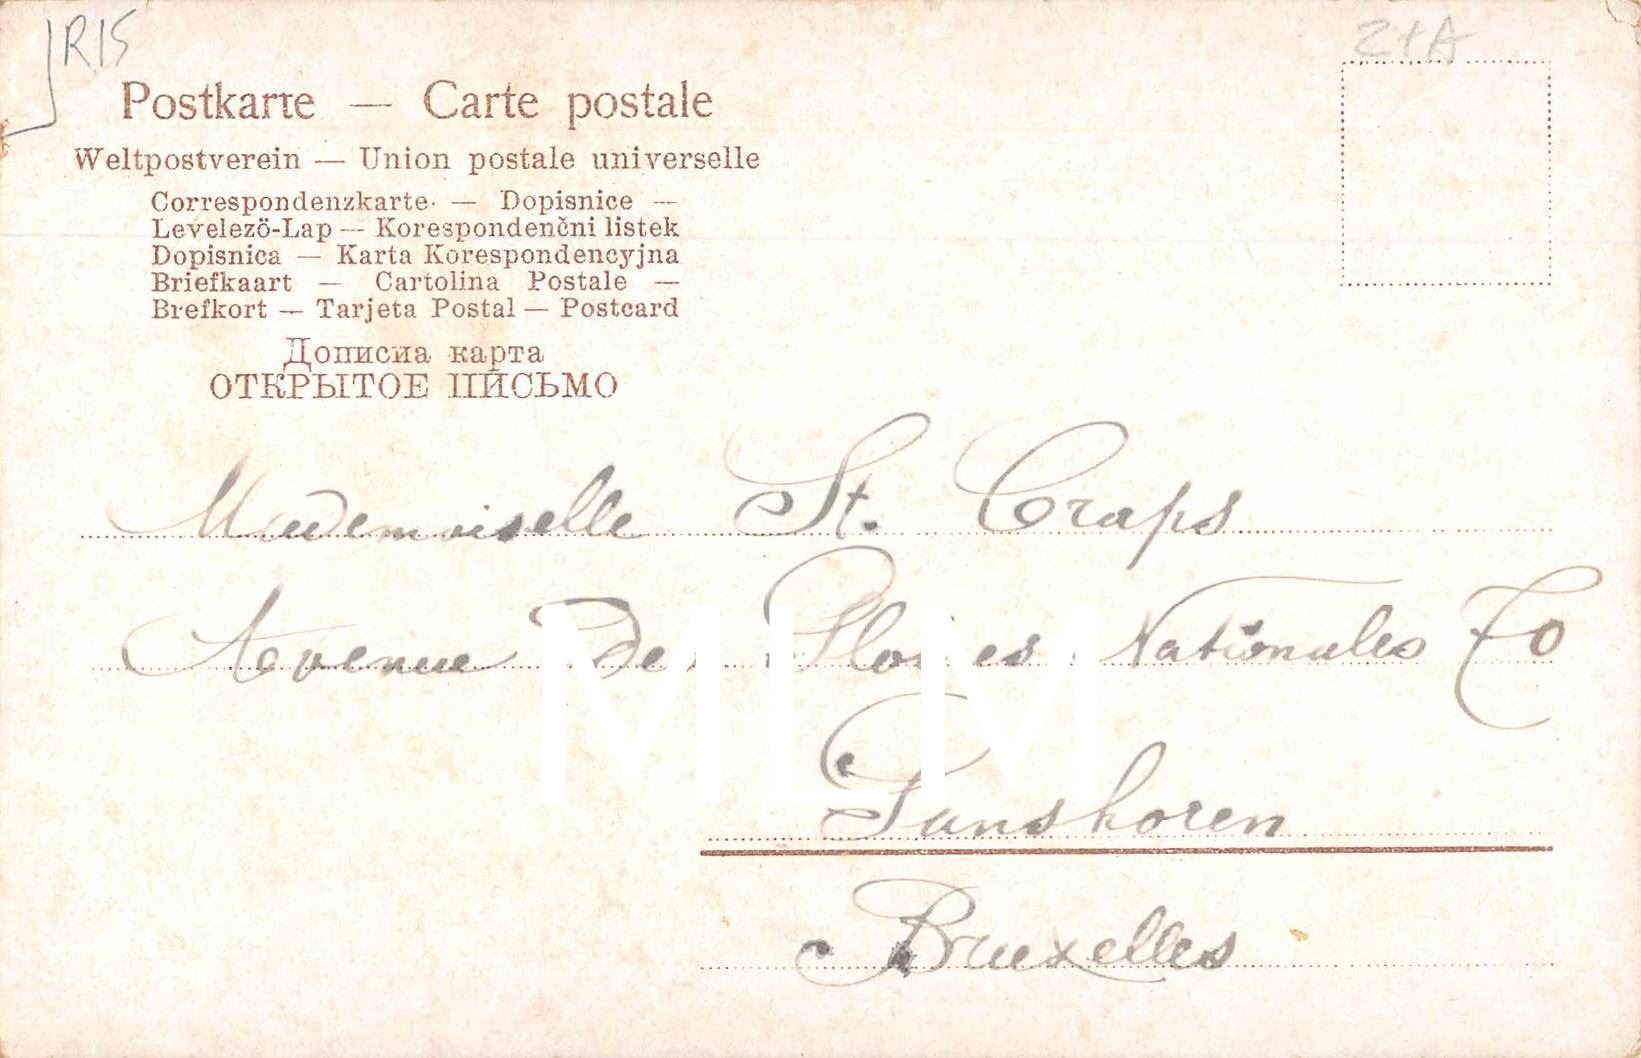 IRIS
Z+A
Postkarte — Carte postale
Weltpostverein — Union postale universelle
Correspondenzkarte — Dopisnice —
Levelezö-Lap — Korespondenčni listek
Dopisnica — Karta Korespondencyjna
Briefkaart — Cartolina Postale —
Brefkort — Tarjeta Postal — Postcard
Дописна карта
ОТКРЫТОЕ ПИСЬМО
Mademoiselle St. Craps
Avenue des Gloires Nationales 70
MLM
Ganshoren
Bruxelles